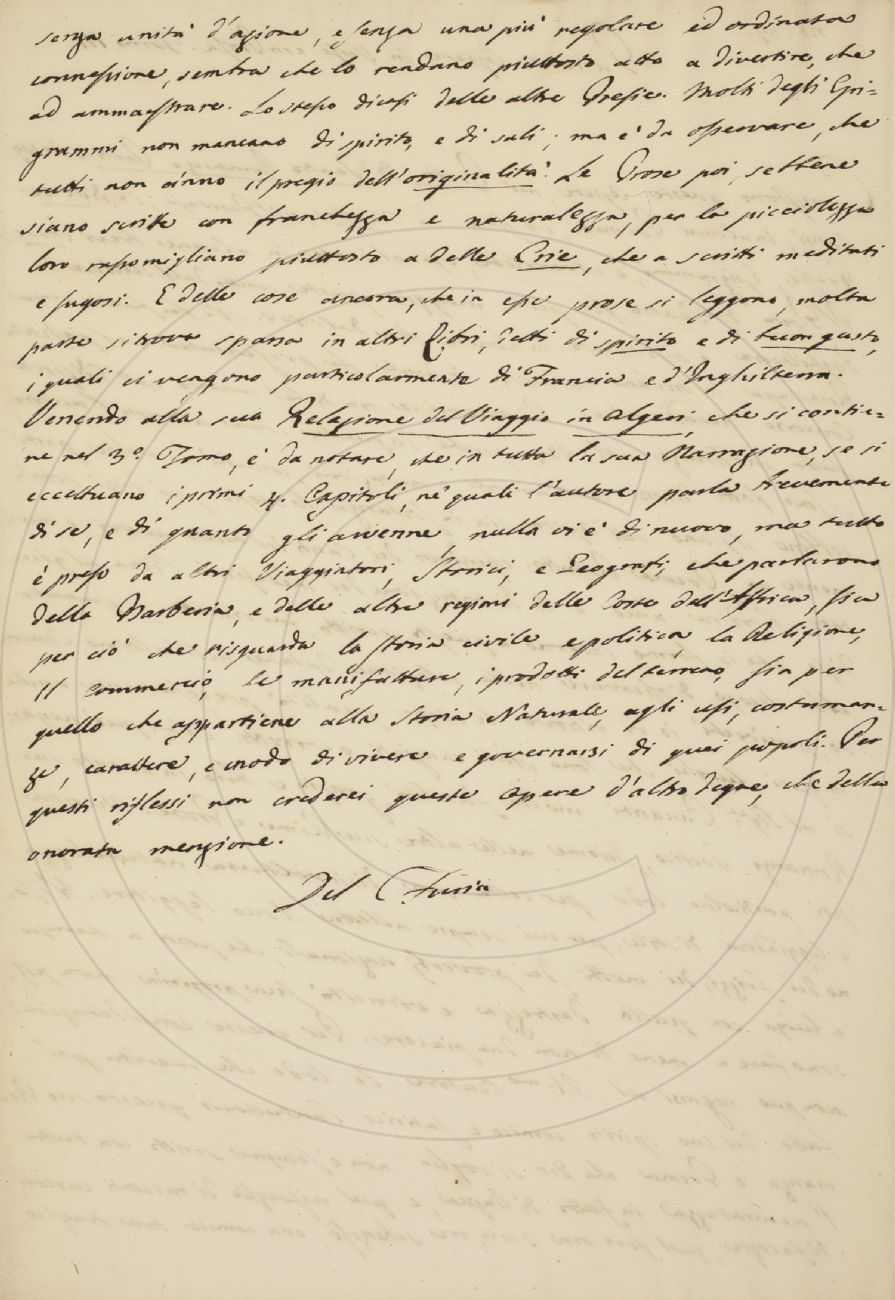 senza unità d'azione, e senza una più regolare ed ordinata
connessione, sembra che lo rendano piuttosto atto a divertire, che
ad ammaestrare. Lo stesso dicasi delle altre Poesie. Molti degli Epi-
grammi non mancano di spirito, e di sali; ma è da osservare, che
tutti non ànno il pregio dell'originalità. Le Prose poi, sebbene
siano scritte con franchezza e naturalezza, per la picciolezza
loro rassomigliano piuttosto a delle Crie, che a scritti meditati
e sugosi. E delle cose ancora, che in esse prose si leggono, molta
parte si trova sparsa in altri Libri, detti di spirito e di buon gusto,
i quali ci vengono particolarmente di Francia e d'Inghilterra.
Venendo alla sua Relazione del Viaggio in Algeri, che si contie-
ne nel 3º. Tomo, è da notare, che in tutta la sua Narrazione, se si
eccettuano i primi 4. Capitoli, ne' quali l'autore parla brevemente
di se, e di quanto gli avvenne, nulla vi è di nuovo, ma tutto
è preso da altri Viaggiatori, Storici, e Geografi, che parlarono
della Barberia, e delle altre regioni delle Coste dell'Affrica, sia
per ciò che risguarda la storia civile e politica, la Religione,
Il commercio, le manifatture, i prodotti del terreno, sia per
quello che appartiene alla Storia Naturale, agli usi, costuman-
ze, carattere, e modo di vivere e governarsi di quei popoli. Per
questi riflessi non crederei queste opere d'altro degne, che della
onorata menzione.
Del Furia